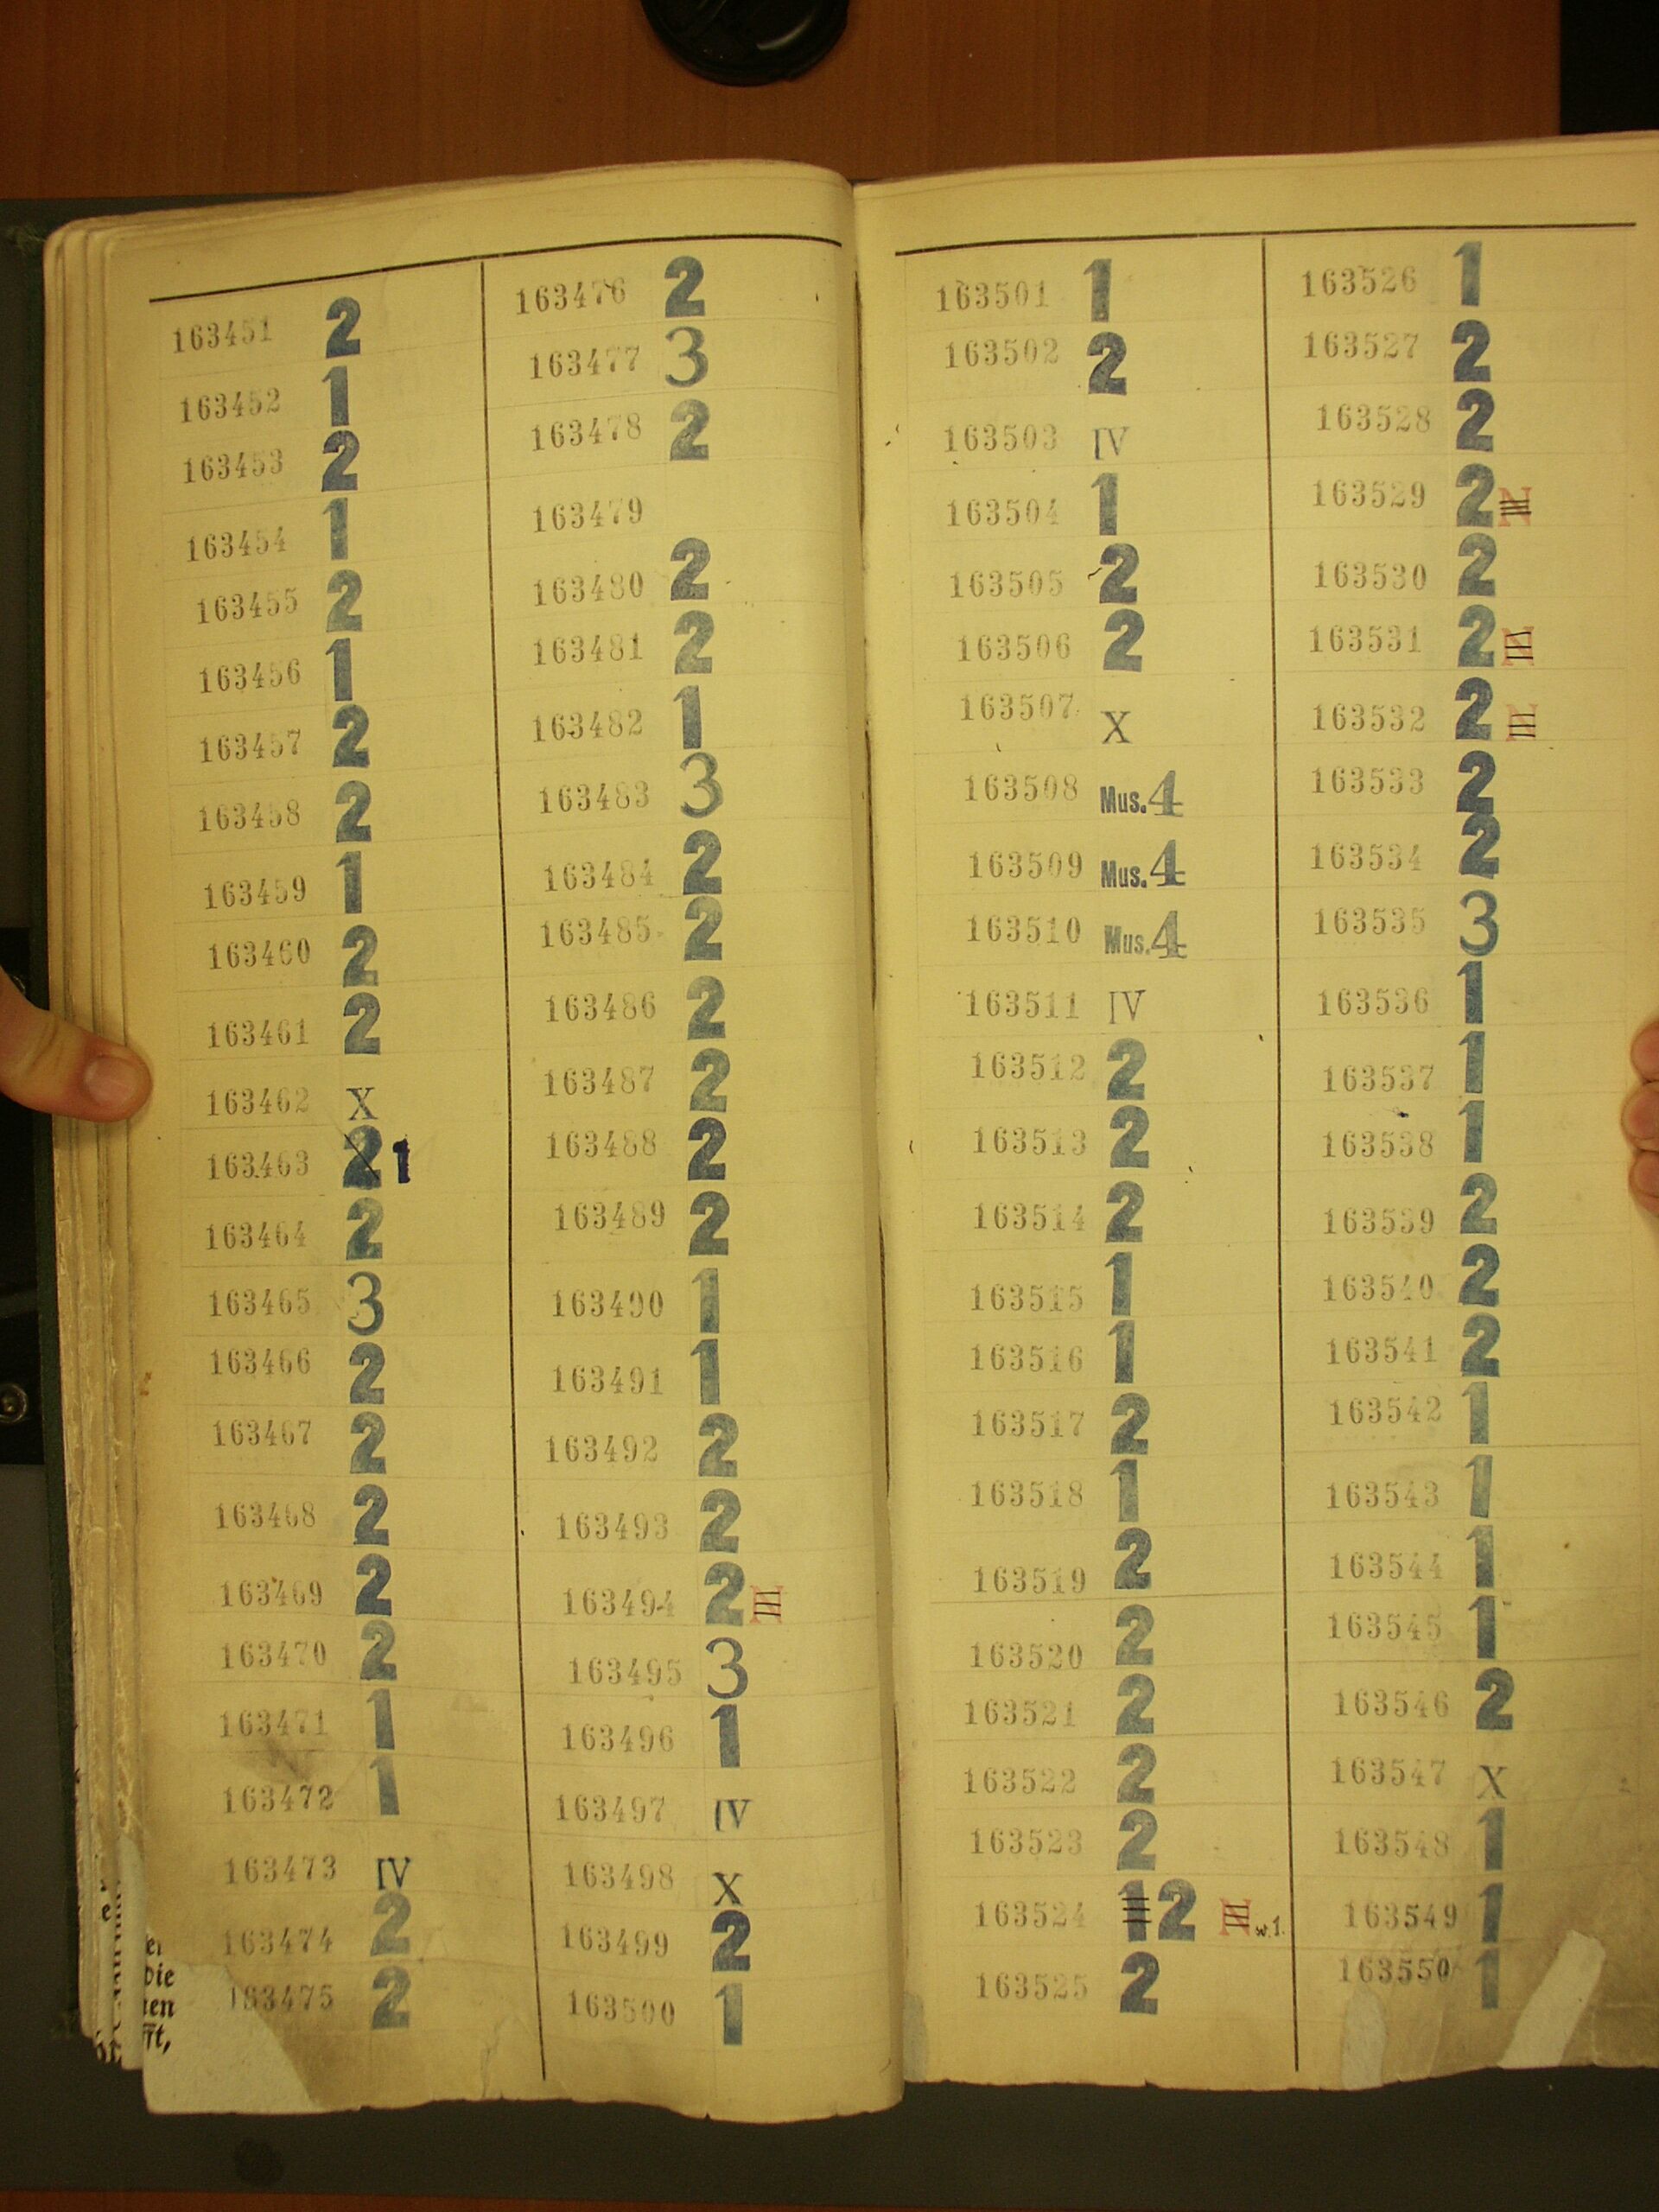 163451 2
163452 1
163453 2
163454 1
163455 2
163456 1
163457 2
163458 2
163459 1
163460 2
163461 2
163462 X
163463 2 1
163464 2
163465 3
163466 2
163467 2
163468 2
163469 2
163470 2
163471 1
163472 1
163473 IV
163474 2
163475 2
163476 2
163477 3
163478 2
163479
163480 2
163481 2
163482 1
163483 3
163484 2
163485 2
163486 2
163487 2
163488 2
163489 2
163490 1
163491 1
163492 2
163493 2
163494 2 N
163495 3
163496 1
163497 IV
163498 X
163499 2
163500 1
163501 1
163502 2
163503 IV
163504 1
163505 2
163506 2
163507 X
163508 Mus. 4
163509 Mus. 4
163510 Mus. 4
163511 IV
163512 2
163513 2
163514 2
163515 1
163516 1
163517 2
163518 1
163519 2
163520 2
163521 2
163522 2
163523 2
163524 1 2 N w. 1.
163525 2
163526 1
163527 2
163528 2
163529 2 N
163530 2
163531 2 N
163532 2 N
163533 2
163534 2
163535 3
163536 1
163537 1
163538 1
163539 2
163540 2
163541 2
163542 1
163543 1
163544 1
163545 1
163546 2
163547 X
163548 1
163549 1
163550 1